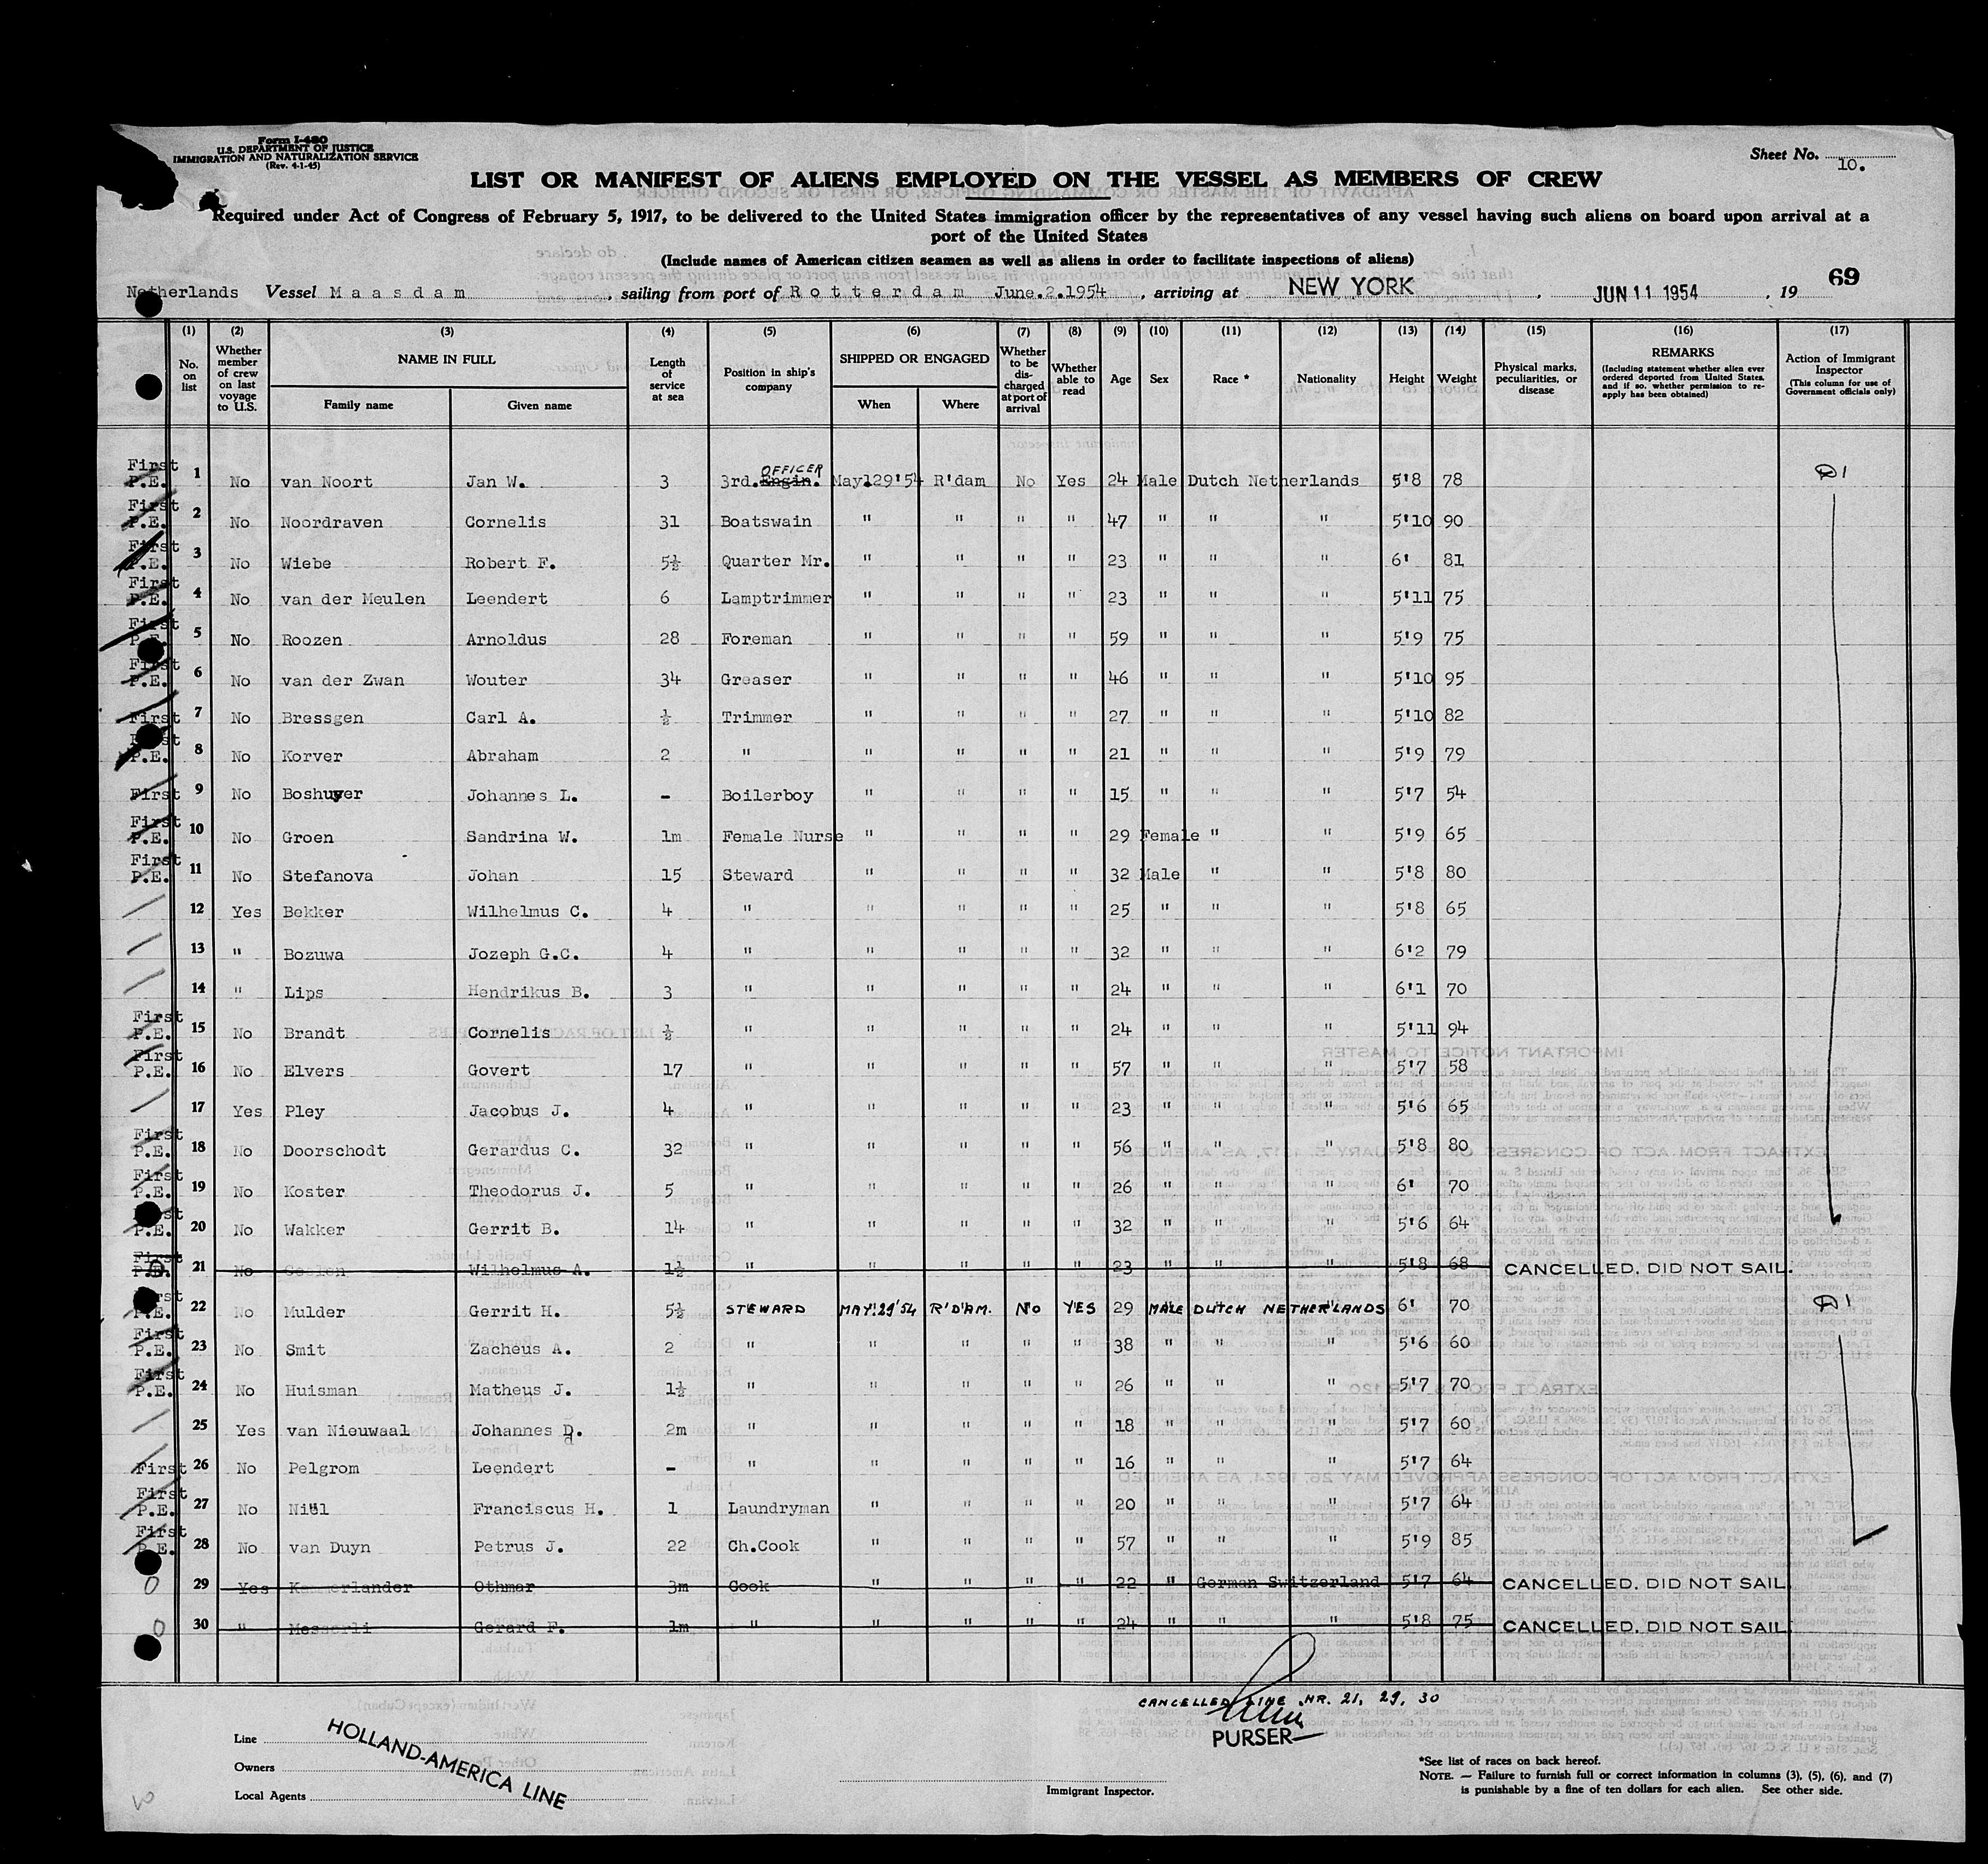 Form I-480
U.S. DEPARTMENT OF JUSTICE
IMMIGRATION AND NATURALIZATION SERVICE
(Rev. 4-1-45)
Sheet No. 10.
LIST OR MANIFEST OF ALIENS EMPLOYED ON THE VESSEL AS MEMBERS OF CREW
Required under Act of Congress of February 5, 1917, to be delivered to the United States immigration officer by the representatives of any vessel having such aliens on board upon arrival at a
port of the United States
(Include names of American citizen seamen as well as aliens in order to facilitate inspections of aliens)
69
Netherlands Vessel Maasdam, sailing from port of Rotterdam June.2.1954, arriving at NEW YORK, JUN 11 1954, 19
(1) (2) (3) (4) (5) (6) (7) (8) (9) (10) (11) (12) (13) (14) (15) (16) (17)
No. on list
Whether member of crew on last voyage to U.S.
NAME IN FULL
Family name Given name
Length of service at sea
Position in ship's company
SHIPPED OR ENGAGED
When Where
Whether to be discharged at port of arrival
Whether able to read
Age Sex Race * Nationality Height Weight
Physical marks, peculiarities, or disease
REMARKS
(Including statement whether alien ever ordered deported from United States, and if so, whether permission to re-apply has been obtained)
Action of Immigrant Inspector
(This column for use of Government officials only)
First P.E. 1 No van Noort Jan W. 3 3rd. Engin. OFFICER May.29'54 R'dam No Yes 24 Male Dutch Netherlands 5'8 78 D1
First P.E. 2 No Noordraven Cornelis 31 Boatswain " " " " 47 " " " 5'10 90
First P.E. 3 No Wiebe Robert F. 5½ Quarter Mr. " " " " 23 " " " 6' 81
First P.E. 4 No van der Meulen Leendert 6 Lamptrimmer " " " " 23 " " " 5'11 75
First P.E. 5 No Roozen Arnoldus 28 Foreman " " " " 59 " " " 5'9 75
First P.E. 6 No van der Zwan Wouter 34 Greaser " " " " 46 " " " 5'10 95
First 7 No Bressgen Carl A. ½ Trimmer " " " " 27 " " " 5'10 82
First P.E. 8 No Korver Abraham 2 " " " " " 21 " " " 5'9 79
First 9 No Boshuyer Johannes L. - Boilerboy " " " " 15 " " " 5'7 54
First P.E. 10 No Groen Sandrina W. 1m Female Nurse " " " " 29 Female " " 5'9 65
First P.E. 11 No Stefanova Johan 15 Steward " " " " 32 Male " " 5'8 80
12 Yes Bekker Wilhelmus C. 4 " " " " " 25 " " " 5'8 65
13 " Bozuwa Jozeph G.C. 4 " " " " " 32 " " " 6'2 79
14 " Lips Hendrikus B. 3 " " " " " 24 " " " 6'1 70
First P.E. 15 No Brandt Cornelis ½ " " " " " 24 " " " 5'11 94
First P.E. 16 No Elvers Govert 17 " " " " " 57 " " " 5'7 58
17 Yes Pley Jacobus J. 4 " " " " " 23 " " " 5'6 65
First P.E. 18 No Doorschodt Gerardus C. 32 " " " " " 56 " " " 5'8 80
First P.E. 19 No Koster Theodorus J. 5 " " " " " 26 " " " 6' 70
First P.E. 20 No Wakker Gerrit B. 14 " " " " " 32 " " " 5'6 64
First P.E. 21 No Wilhelmus A. 1½ " " " " " 23 " " " 5'8 68 CANCELLED. DID NOT SAIL.
First P.E. 22 No Mulder Gerrit H. 5½ STEWARD MAY.29'54 R'DAM. NO YES 29 MALE DUTCH NETHERLANDS 6' 70 D1
First P.E. 23 No Smit Zacheus A. 2 " " " " " 38 " " " 5'6 60
First P.E. 24 No Huisman Matheus J. 1½ " " " " " 26 " " " 5'7 70
25 Yes van Nieuwaal Johannes D. 2m " " " " " 18 " " " 5'7 60
First 26 No Pelgrom Leendert - " " " " " 16 " " " 5'7 64
First P.E. 27 No Niül Franciscus H. 1 Laundryman " " " " 20 " " " 5'7 64
First P.E. 28 No van Duyn Petrus J. 22 Ch.Cook " " " " 57 " " " 5'9 85
0 29 Yes Othmar 3m Cook " " " " 22 " German Switzerland 5'7 64 CANCELLED. DID NOT SAIL.
0 30 " Messerli Gerard F. 1m " " " " " 24 " " " 5'8 75 CANCELLED. DID NOT SAIL.
CANCELLED LINE NR. 21, 29, 30
PURSER
Line
Owners
Local Agents
HOLLAND-AMERICA LINE
Immigrant Inspector.
*See list of races on back hereof.
NOTE. — Failure to furnish full or correct information in columns (3), (5), (6), and (7)
is punishable by a fine of ten dollars for each alien. See other side.